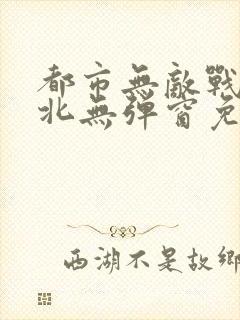 都市無敵戰
北無彈窗免
西湖不是故鄉